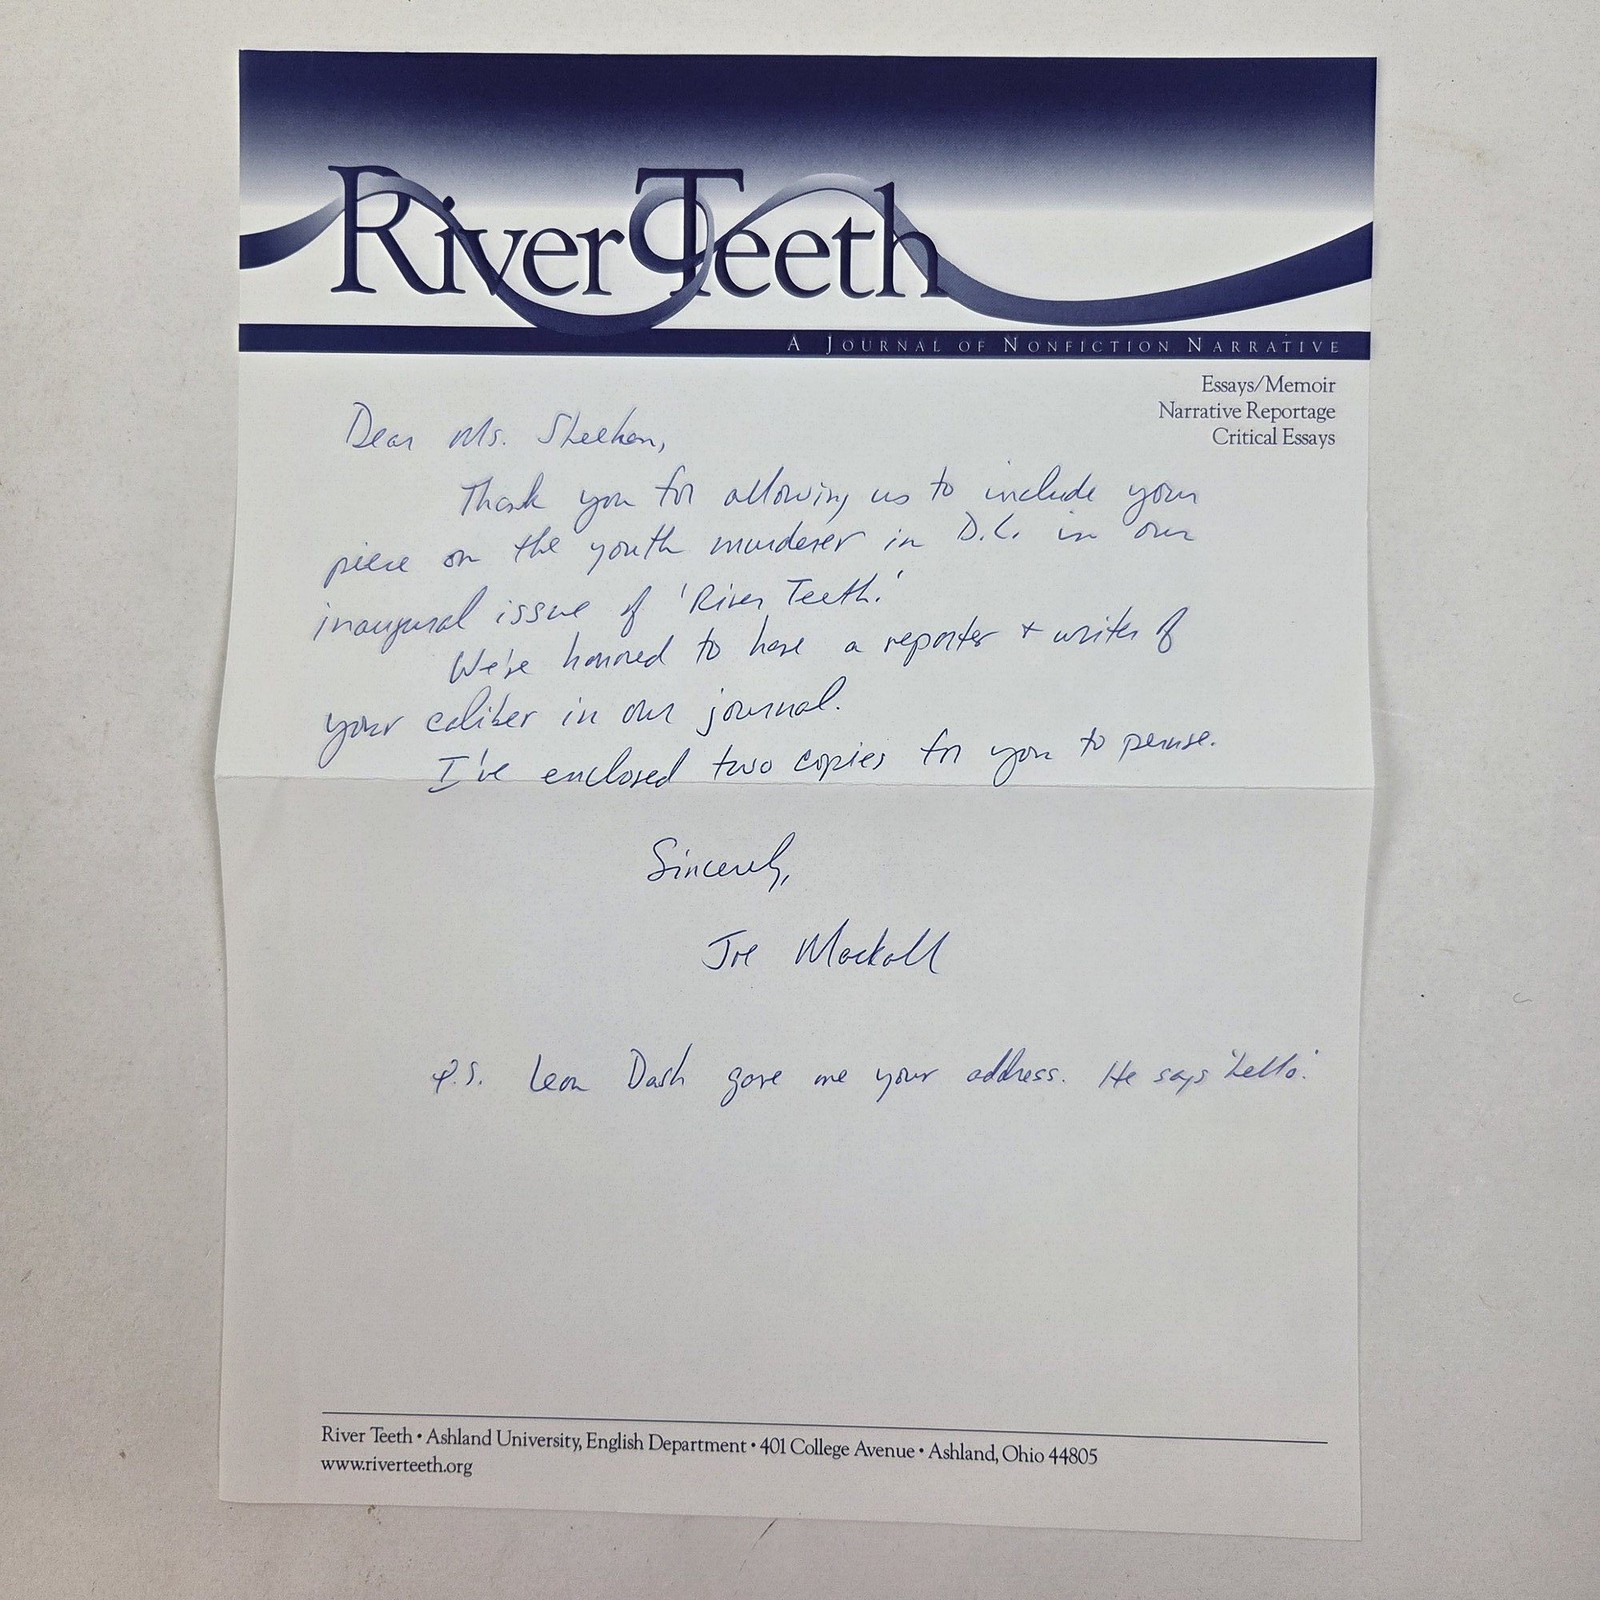 River Teeth
A Journal of Nonfiction Narrative
Essays/Memoir
Narrative Reportage
Critical Essays
Dear Ms. Sheehan,
Thank you for allowing us to include your
piece on the youth murderer in D.C. in our
inaugural issue of 'River Teeth.'
We're honored to have a reporter + writer of
your caliber in our journal.
I've enclosed two copies for you to peruse.
Sincerely,
Joe Mackall
P.S. Leon Dash gave me your address. He says 'hello.'
River Teeth • Ashland University, English Department • 401 College Avenue • Ashland, Ohio 44805
www.riverteeth.org